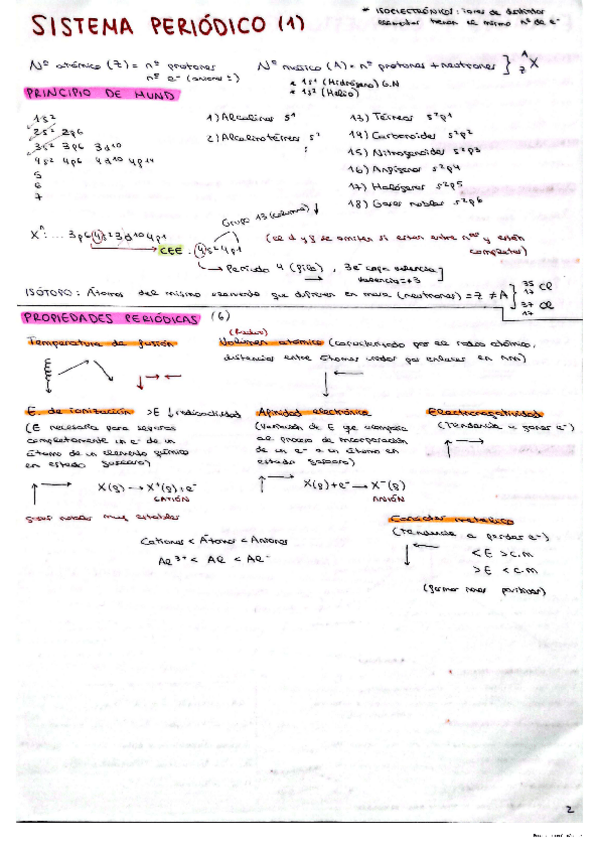 SISTEMA PERIÓDICO (1)
* ISOELECTRÓNICOS: iones de distintos
elementos tienen el mismo nº de e-
Nº atómico (Z) = nº protones
nº e- (aniones
Nº másico (A) = nº protones + neutrones } A Z X
* 1s1 (Hidrógeno) G.N
* 1s2 (Helio)
PRINCIPIO DE HUND
1s2
2s2 2p6
3s2 3p6 3d10
4s2 4p6 4d10 4f14
5
6
7
1) Alcalinos s1
2) Alcalinotérreos s2
:
13) Térreos s2p1
14) Carbonoides s2p2
15) Nitrogenoides s2p3
16) Anfígenos s2p4
17) Halógenos s2p5
18) Gases nobles s2p6
Grupo 13 (columna) ↓
X^: ... 3p6 4s2 3d10 4p1 → CEE. 4s2 4p1
(el d y f se omiten si están entre nos y están
completos)
→ Período 4 (filas), 3e- capa valencia
valencia = +3
ISÓTOPO: Átomos del mismo elemento que difieren en masa (neutrones) = Z ≠ A } 35 17 Cl
37 17 Cl
PROPIEDADES PERIÓDICAS (6)
Temperatura de fusión
(Radio)
Volumen atómico (caracterizado por el radio atómico,
distancias entre átomos unidos por enlaces en nm)
E. de ionización >E ↓ radioactividad
(E necesaria para separar
completamente un e- de un
átomo de un elemento químico
en estado gaseoso)
X(g) → X+(g) + e-
CATIÓN
gases nobles muy estables
Afinidad electrónica
(Variación de E que acompaña
al proceso de incorporación
de un e- a un átomo en
estado gaseoso)
X(g) + e- → X-(g)
ANIÓN
Electronegatividad
(Tendencia a ganar e-)
Cationes < Átomos < Aniones
Al3+ < Al < Al-
Carácter metálico
(Tendencia a perder e-)
<E >c.m
>E <c.m
(formar iones positivos)
2